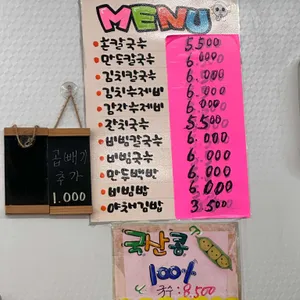 MENU
손칼국수 5.500
만두칼국수 6.000
김치칼국수 6.000
김치수제비 6.000
감자수제비 6.000
잔치국수 5.500
비빔칼국수 6.000
비빔국수 6.000
만두백반 6.000
비빔밥 6.000
야채김밥 3.500
곱빼기
추가
1.000
국산콩
100%
국수: 8.500